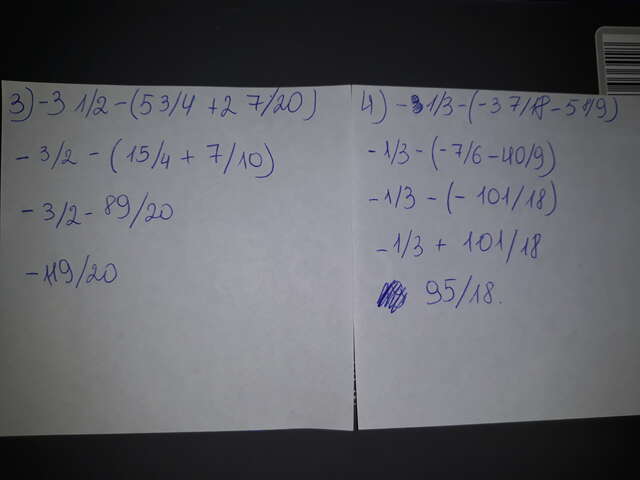 3) -3 1/2 - (5 3/4 + 2 7/20)
- 3/2 - (15/4 + 7/10)
- 3/2 - 89/20
-119/20
4) - 31/3 - (-3 7/18 - 5 8/9)
- 1/3 - (-7/6 - 40/9)
- 1/3 - (- 101/18)
- 1/3 + 101/18
95/18.